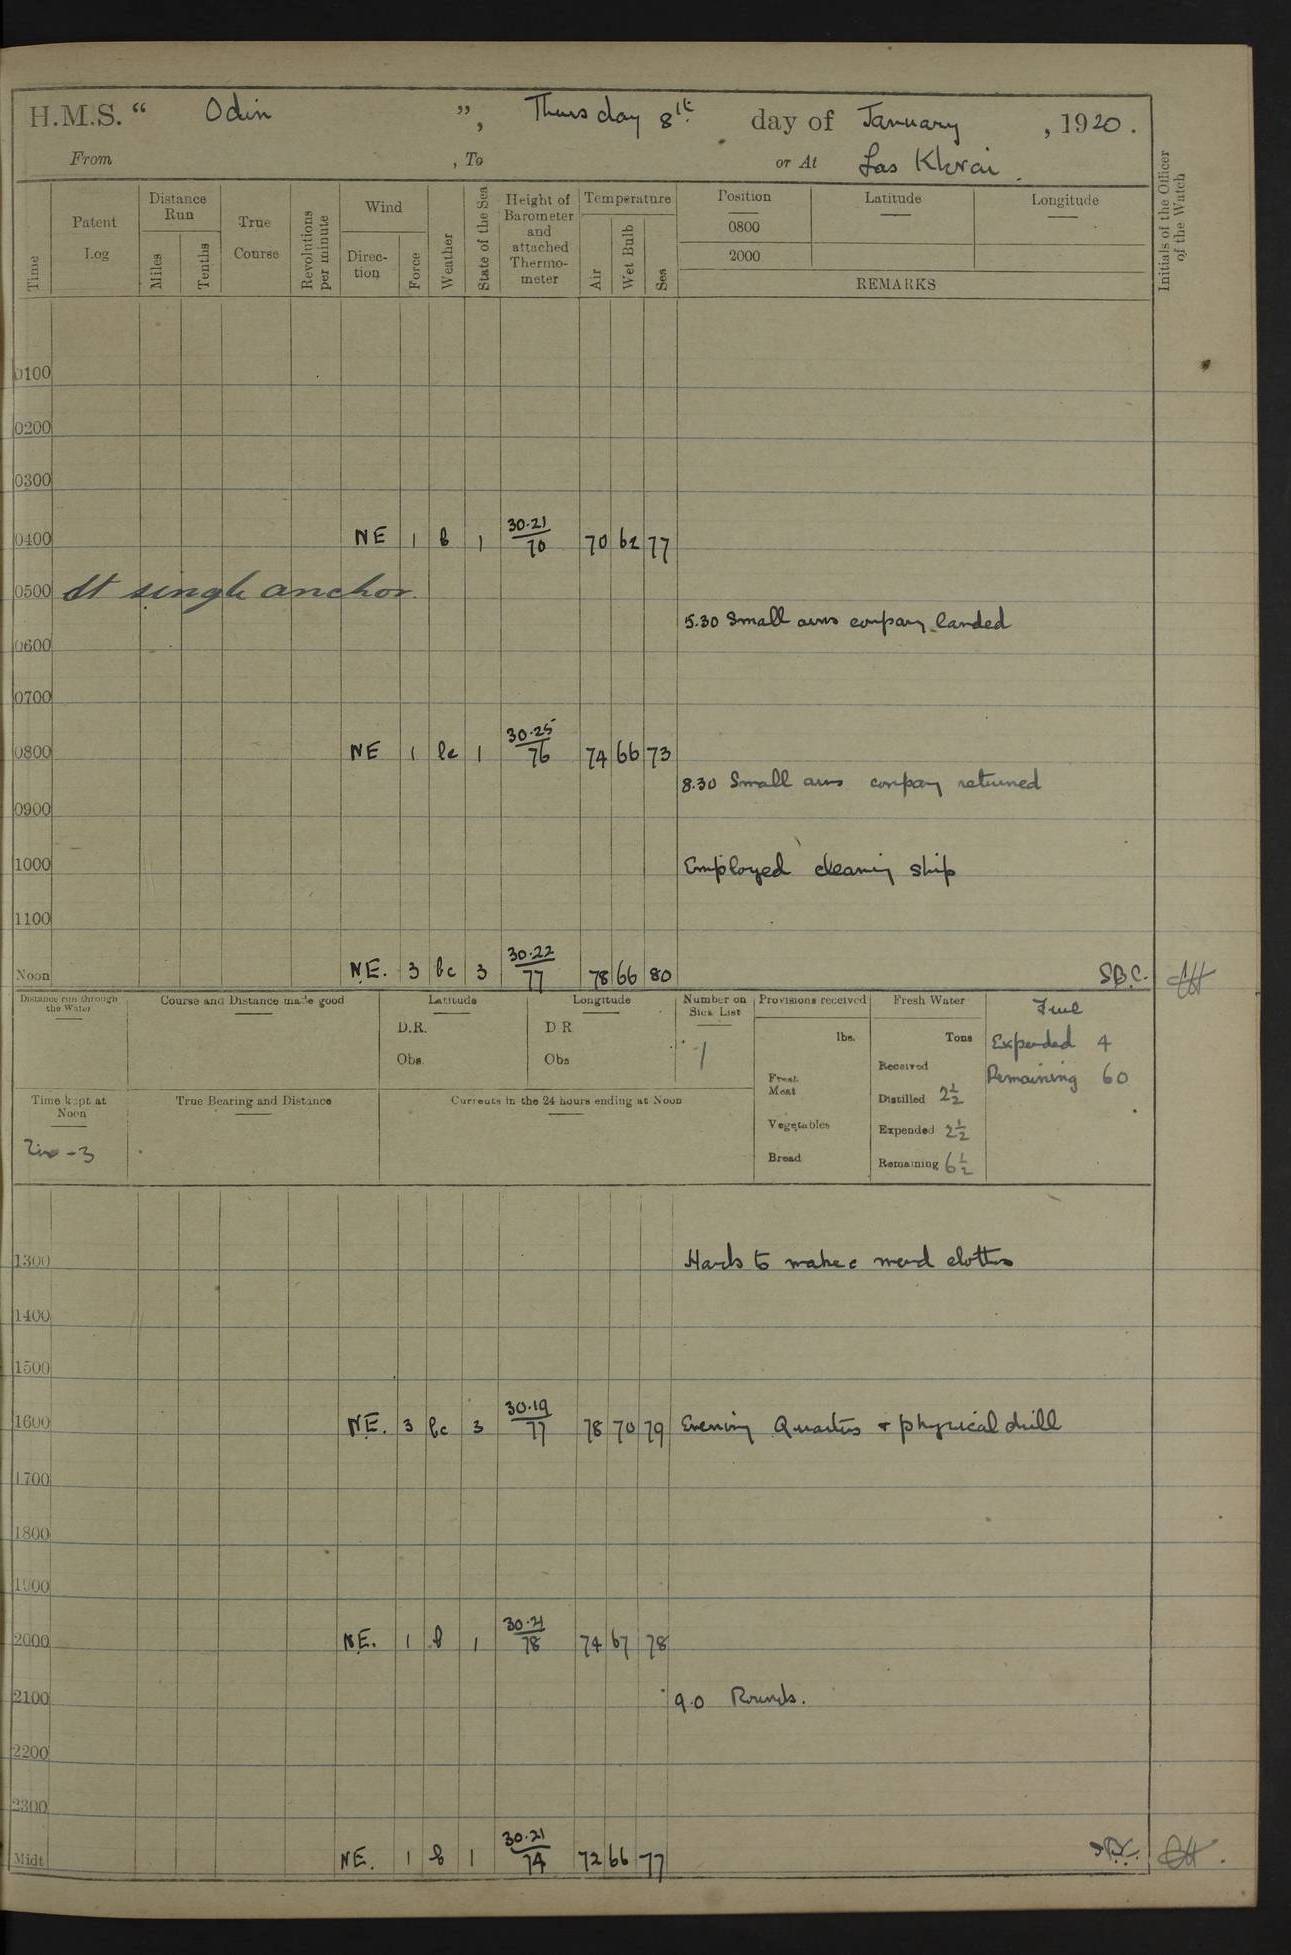 H.M.S. “ Odin ”, Thursday 8th day of January, 1920.
From , To or At Las Khorai.
Time
Patent Log
Distance Run
Miles
Tenths
True Course
Revolutions per minute
Wind
Direction
Force
Weather
State of the Sea
Height of Barometer and attached Thermometer
Temperature
Air
Wet Bulb
Sea
Position
0800
2000
Latitude
Longitude
REMARKS
Initials of the Officer of the Watch
0100
0200
0300
0400 NE 1 b 1 30.21/70 70 62 77
0500 At single anchor.
5.30 Small arms company landed
0600
0700
0800 NE 1 bc 1 30.25/76 74 66 73
8.30 Small arms company returned
0900
1000 Employed cleaning ship
1100
Noon N.E. 3 bc 3 30.22/77 78 66 80 S.B.C.
Distance run through the Water
Course and Distance made good
Latitude
D.R.
Obs.
Longitude
D R
Obs
Number on Sick List
1
Provisions received
lbs.
Fresh Meat
Vegetables
Bread
Fresh Water
Tons
Received
Distilled 2½
Expended 2½
Remaining 6½
Fuel
Expended 4
Remaining 60
Time kept at Noon
Zone -3
True Bearing and Distance
Currents in the 24 hours ending at Noon
1300 Hands to make & mend clothes
1400
1500
1600 N.E. 3 bc 3 30.19/77 78 70 79 Evening Quarters & physical drill
1700
1800
1900
2000 N.E. 1 b 1 30.21/78 74 67 78
2100 9.0 Rounds.
2200
2300
Midt NE. 1 b 1 30.21/74 72 66 77 S.B.C.